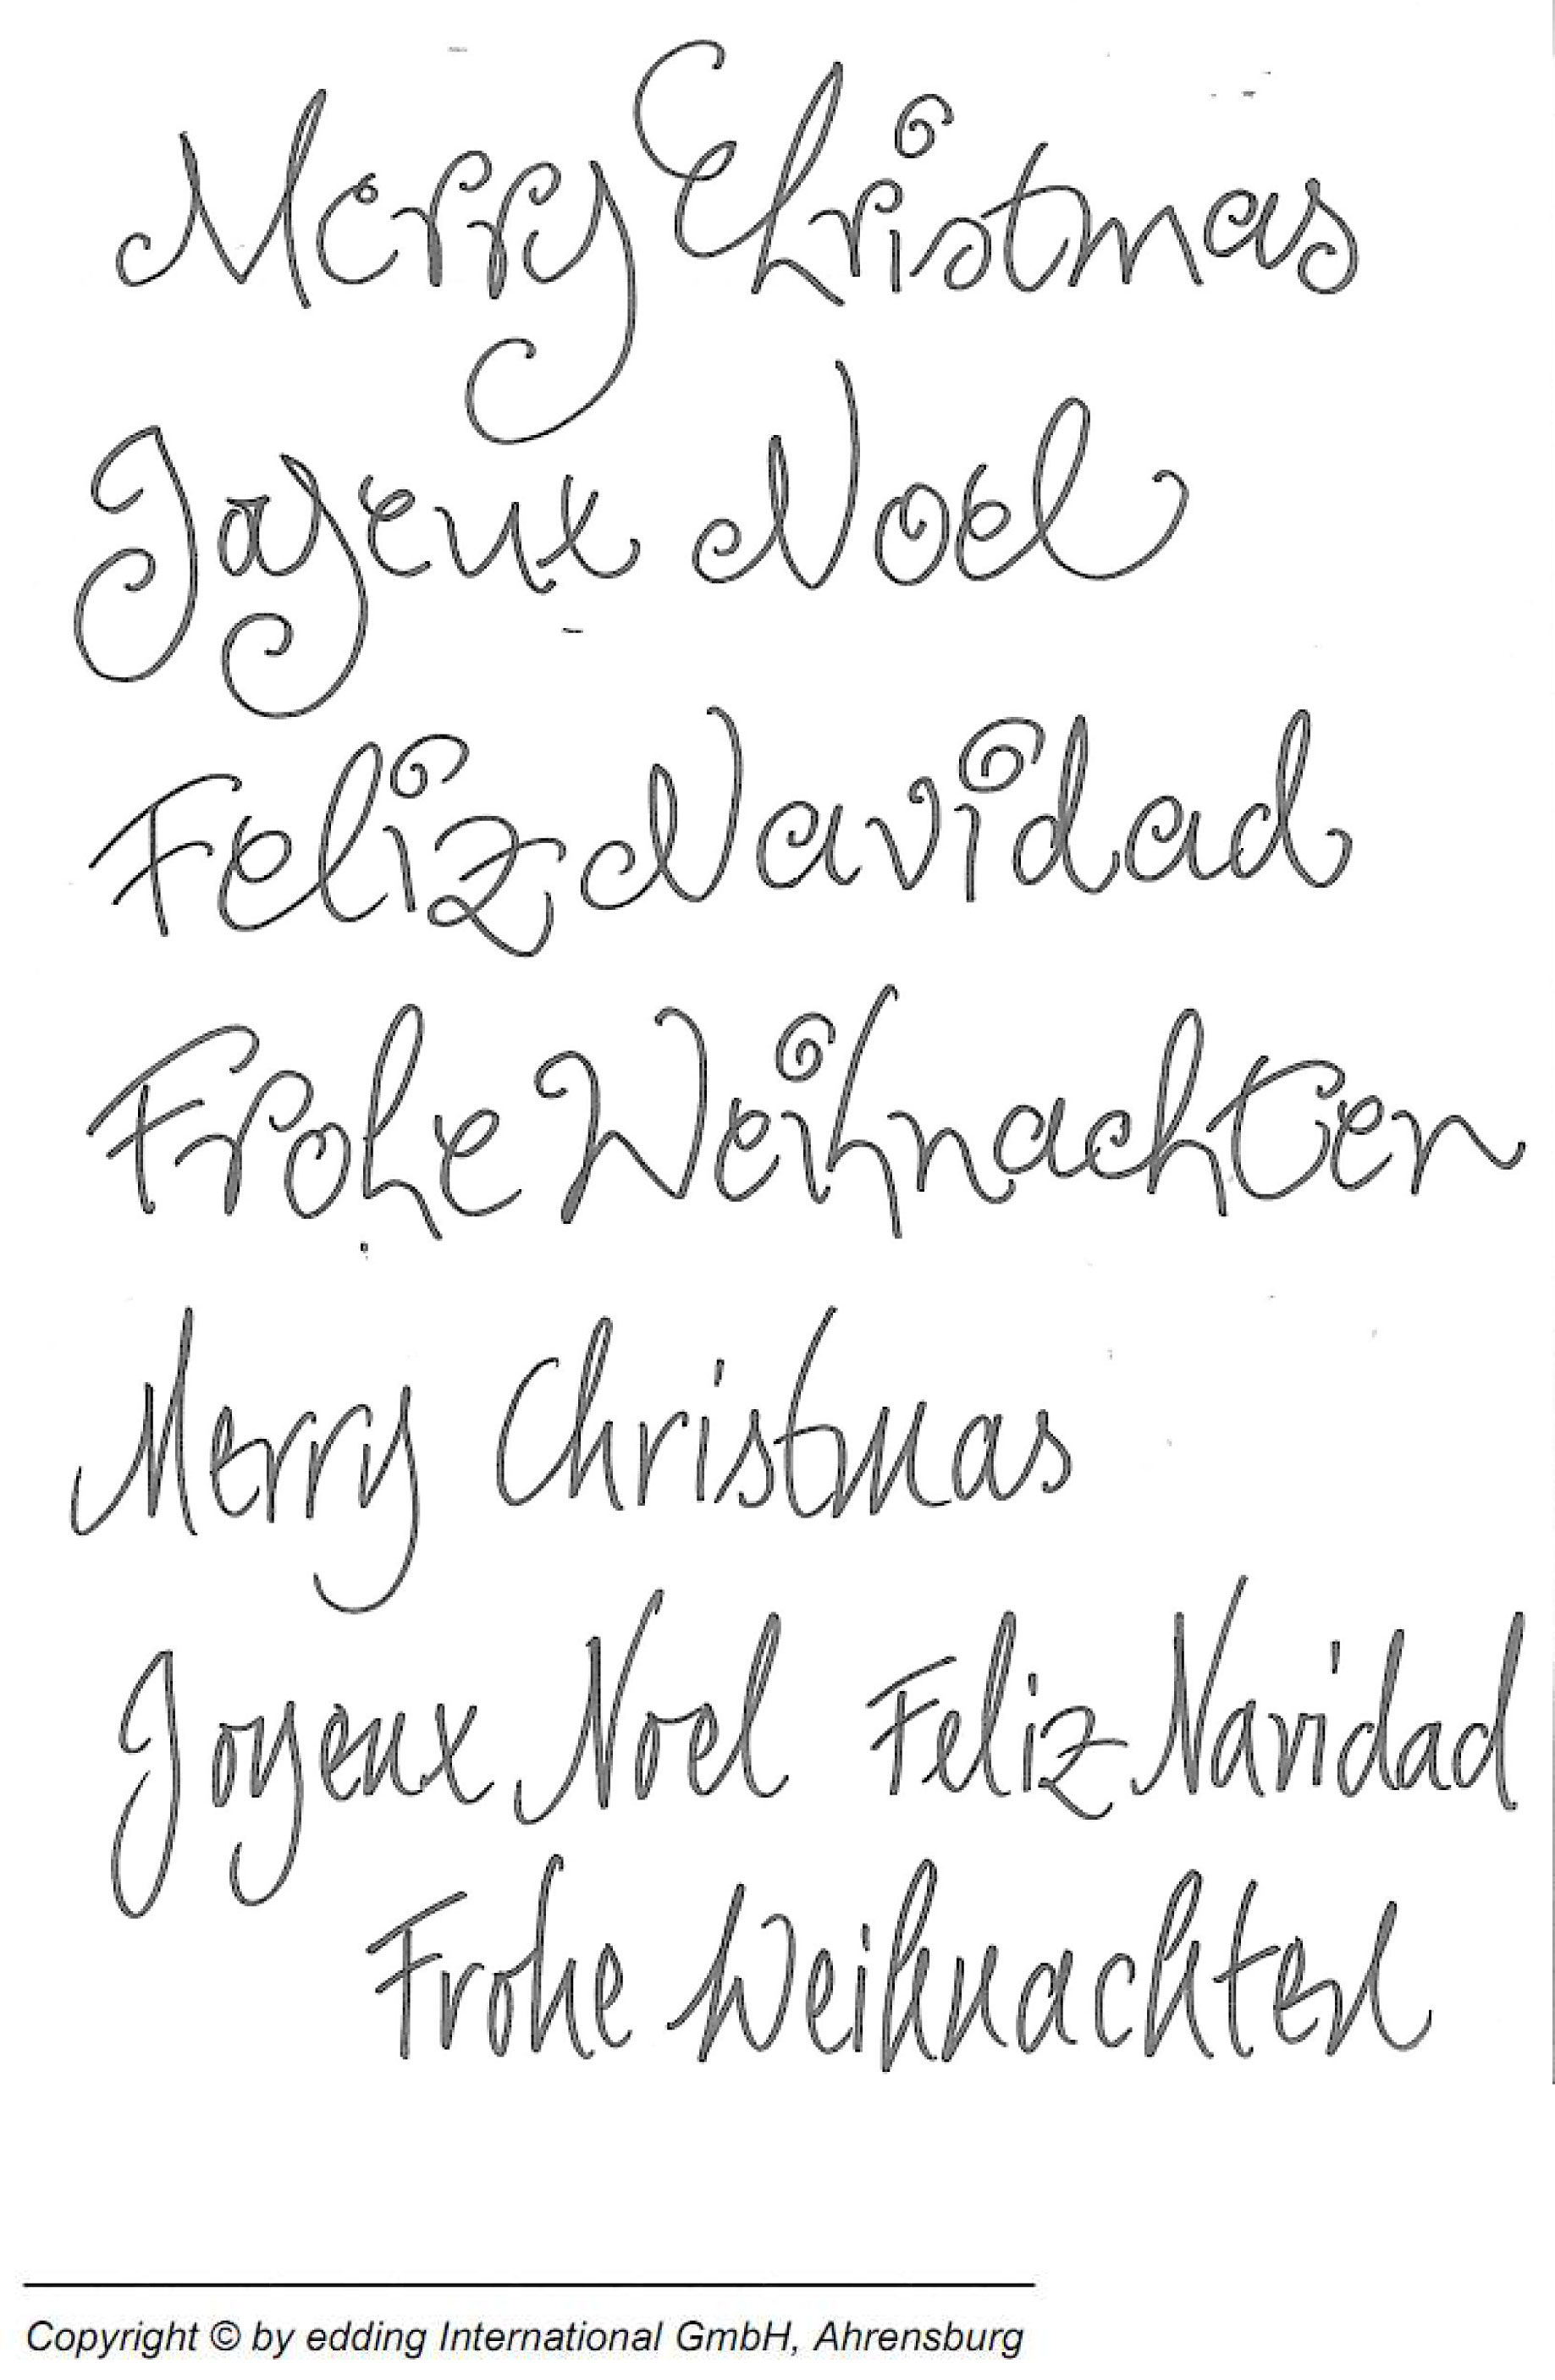 Merry Christmas
Joyeux Noel
Feliz Navidad
Frohe Weihnachten
Merry Christmas
Joyeux Noel Feliz Navidad
Frohe Weihnachten
Copyright © by edding International GmbH, Ahrensburg